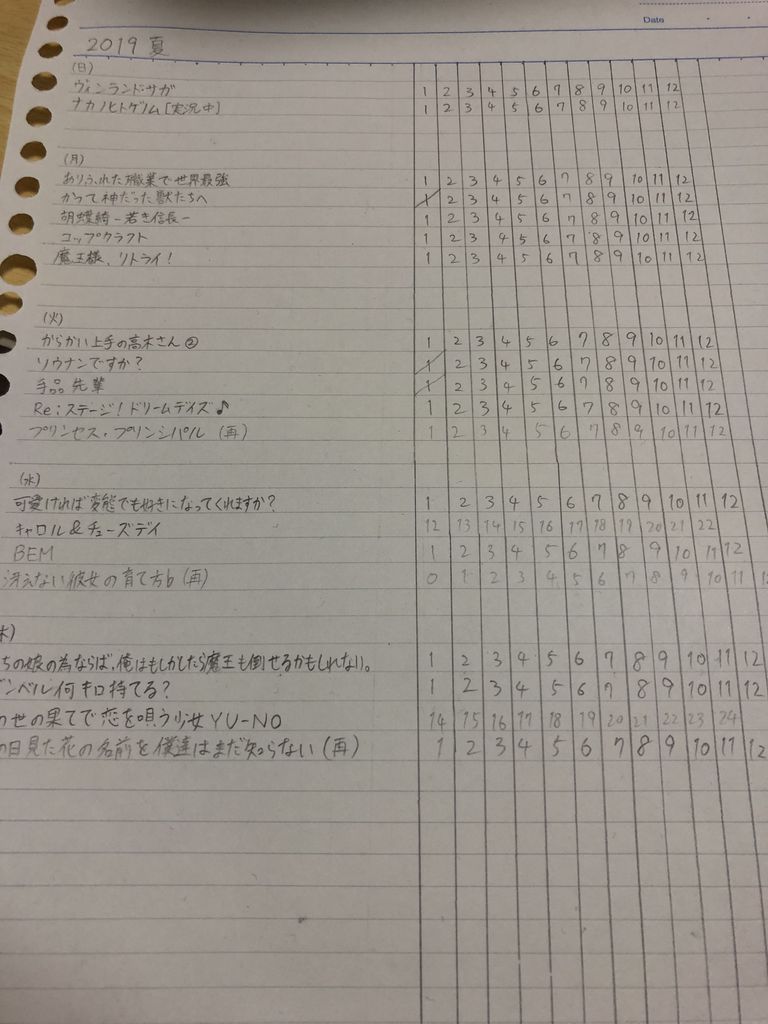 Date
2019 夏
(日)
ヴィンランド・サガ 1 2 3 4 5 6 7 8 9 10 11 12
ナカノヒトゲノム[実況中] 1 2 3 4 5 6 7 8 9 10 11 12
(月)
ありふれた職業で世界最強 1 2 3 4 5 6 7 8 9 10 11 12
かつて神だった獣たちへ 1 2 3 4 5 6 7 8 9 10 11 12
胡蝶綺-若き信長- 1 2 3 4 5 6 7 8 9 10 11 12
コップクラフト 1 2 3 4 5 6 7 8 9 10 11 12
魔王様、リトライ! 1 2 3 4 5 6 7 8 9 10 11 12
(火)
からかい上手の高木さん② 1 2 3 4 5 6 7 8 9 10 11 12
ソウナンですか? 1 2 3 4 5 6 7 8 9 10 11 12
手品先輩 1 2 3 4 5 6 7 8 9 10 11 12
Re:ステージ!ドリームデイズ♪ 1 2 3 4 5 6 7 8 9 10 11 12
プリンセス・プリンシパル (再) 1 2 3 4 5 6 7 8 9 10 11 12
(水)
可愛ければ変態でも好きになってくれますか? 1 2 3 4 5 6 7 8 9 10 11 12
キャロル&チューズデイ 12 13 14 15 16 17 18 19 20 21 22
BEM 1 2 3 4 5 6 7 8 9 10 11 12
冴えない彼女の育て方b (再) 0 1 2 3 4 5 6 7 8 9 10 11
木)
ちの娘の為ならば、俺はもしかしたら魔王も倒せるかもしれない。 1 2 3 4 5 6 7 8 9 10 11 12
ンベル何キロ持てる? 1 2 3 4 5 6 7 8 9 10 11 12
の世の果てで恋を唄う少女YU-NO 14 15 16 17 18 19 20 21 22 23 24
の日見た花の名前を僕達はまだ知らない (再) 1 2 3 4 5 6 7 8 9 10 11 12